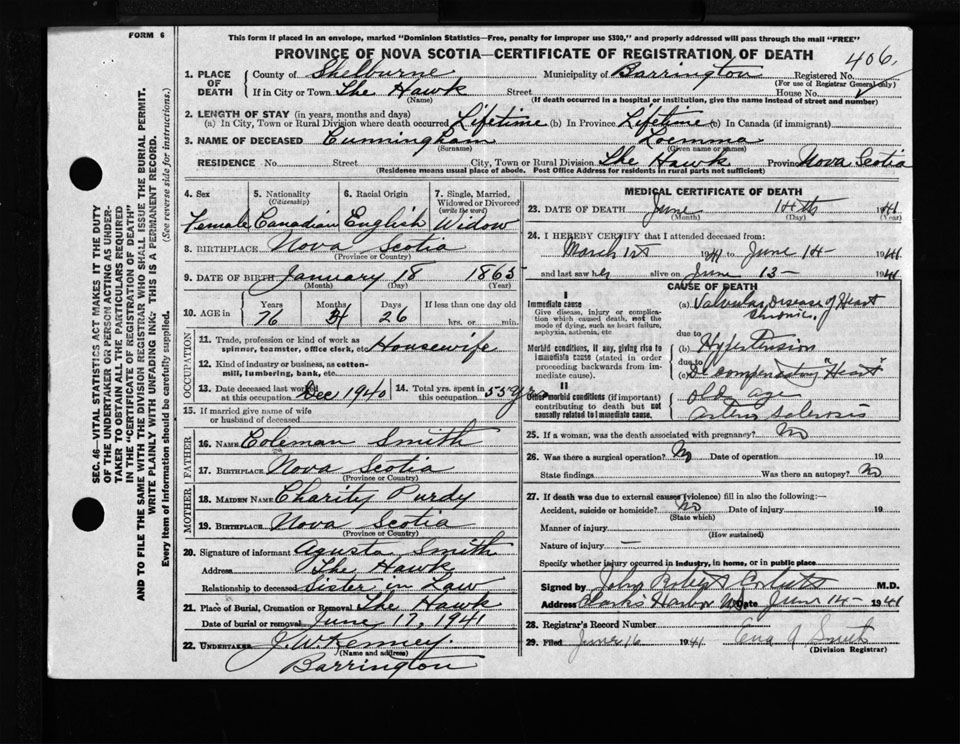 FORM 6
This form if placed in an envelope, marked "Dominion Statistics—Free, penalty for improper use $300," and properly addressed will pass through the mail "FREE"
PROVINCE OF NOVA SCOTIA—CERTIFICATE OF REGISTRATION OF DEATH
406
SEC. 46—VITAL STATISTICS ACT MAKES IT THE DUTY
OF THE UNDERTAKER OR PERSON ACTING AS UNDER-
TAKER TO OBTAIN ALL THE PARTICULARS REQUIRED
IN THE "CERTIFICATE OF REGISTRATION OF DEATH"
AND TO FILE THE SAME WITH THE DIVISION REGISTRAR WHO SHALL ISSUE THE BURIAL PERMIT.
WRITE PLAINLY WITH UNFADING INK. THIS IS A PERMANENT RECORD.
Every item of Information should be carefully supplied. (See reverse side for instructions.)
1. PLACE OF DEATH
County of Shelburne Municipality of Barrington Registered No.
(For use of Registrar General only)
If in City or Town The Hawk Street House No.
(Name) (If death occurred in a hospital or institution, give the name instead of street and number)
2. LENGTH OF STAY (in years, months and days)
(a) In City, Town or Rural Division where death occurred Lifetime (b) In Province Lifetime (c) In Canada (if immigrant)
3. NAME OF DECEASED Cunningham Loemma
(Surname) (Given name or names)
RESIDENCE No. Street City, Town or Rural Division The Hawk Province Nova Scotia
(Residence means usual place of abode. Post Office Address for residents in rural parts not sufficient)
4. Sex Female
5. Nationality (Citizenship) Canadian
6. Racial Origin English
7. Single, Married, Widowed or Divorced (write the word) Widow
8. BIRTHPLACE Nova Scotia
(Province or Country)
9. DATE OF BIRTH January 18 1865
(Month) (Day) (Year)
10. AGE in Years 76 Months 4 Days 26 If less than one day old hrs. or min.
OCCUPATION
11. Trade, profession or kind of work as spinner, teamster, office clerk, etc. Housewife
12. Kind of industry or business, as cotton-mill, lumbering, bank, etc.
13. Date deceased last worked at this occupation Dec 1940
14. Total yrs. spent in this occupation 55 Yrs
15. If married give name of wife or husband of deceased
FATHER
16. NAME Coleman Smith
17. BIRTHPLACE Nova Scotia
(Province or Country)
MOTHER
18. MAIDEN NAME Charity Purdy
19. BIRTHPLACE Nova Scotia
(Province or Country)
20. Signature of informant Agusta Smith
Address The Hawk
Relationship to deceased Sister in Law
21. Place of Burial, Cremation or Removal The Hawk
Date of burial or removal June 17, 1941
22. UNDERTAKER J. W. Kenney.
(Name and address)
Barrington
MEDICAL CERTIFICATE OF DEATH
23. DATE OF DEATH June 14th 1941
(Month) (Day) (Year)
24. I HEREBY CERTIFY that I attended deceased from:
March 1st 1941 to June 14- 1941
and last saw her alive on June 13- 1941
CAUSE OF DEATH
I
Immediate cause
Give disease, injury or complication which caused death, not the mode of dying, such as heart failure, asphyxia, asthenia, etc
(a) Valvular Disease of Heart
Chronic.
due to
Morbid conditions, if any, giving rise to immediate cause (stated in order proceeding backwards from immediate cause).
(b) Hypertension
due to
(c) Decompensating "Heart"
II
Other morbid conditions (if important) contributing to death but not causally related to immediate cause.
old age
Arterio Sclerosis
25. If a woman, was the death associated with pregnancy? No
26. Was there a surgical operation? No Date of operation 19
State findings Was there an autopsy? No
27. If death was due to external causes (violence) fill in also the following:—
Accident, suicide or homicide? No Date of injury 19
(State which)
Manner of injury
(How sustained)
Nature of injury —
Specify whether injury occurred in Industry, in home, or in public place
Signed by John M.D.
Address Clarks Harbor N.S. Date June 14- 1941
28. Registrar's Record Number
29. Filed June 16 1941 Smith
(Division Registrar)